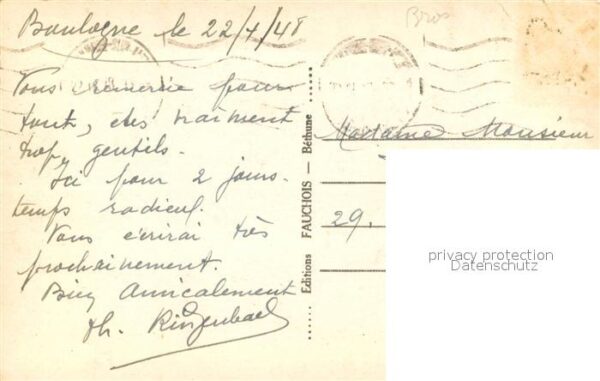 Boulogne le 22/4/48
Vous remercie pour
tout, êtes vraiment
trop gentils.
Ici pour 2 jours.
temps radieux.
Vous écrirai très
prochainement.
Bien Amicalement
Th.
Editions FAUCHOIS — Béthune
Bros
Madame Monsieur
29.
privacy protection
Datenschutz